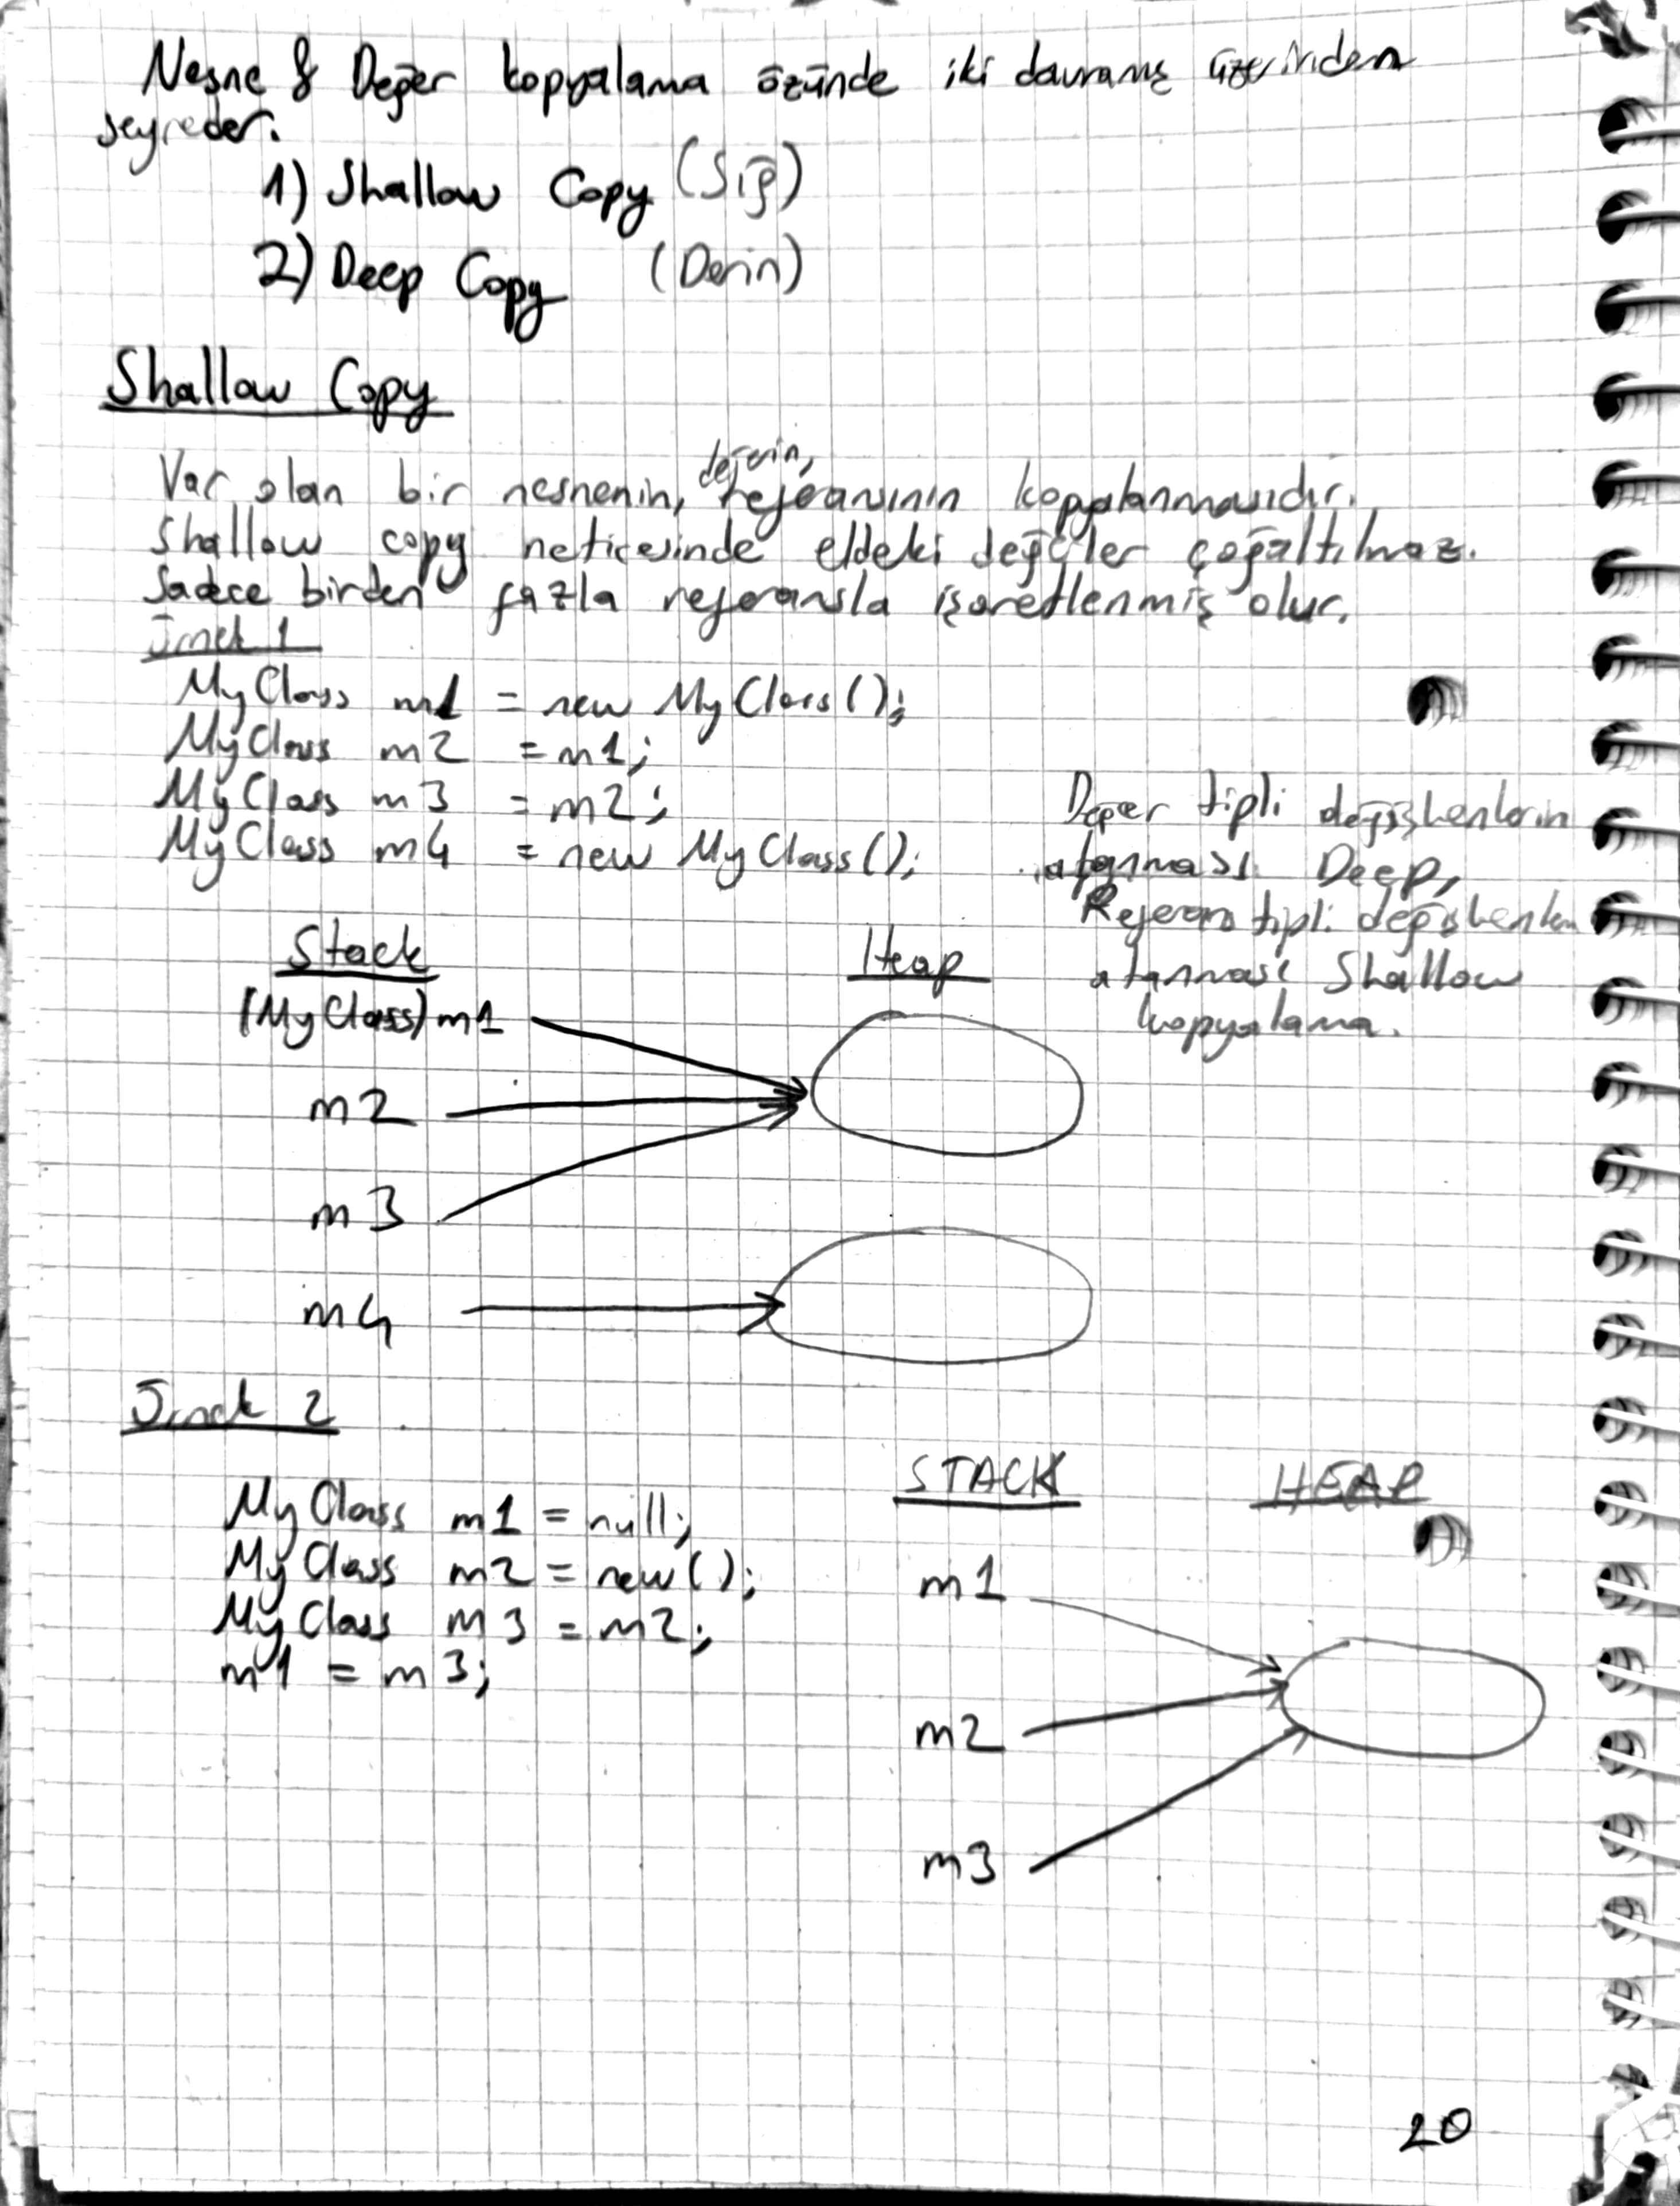 Nesne & Değer kopyalama özünde iki davranış üzerinden
seyreder.
1) Shallow Copy (Sığ)
2) Deep Copy (Derin)
Shallow Copy
Var olan bir nesnenin, değerin, referansının kopyalanmasıdır.
Shallow copy neticesinde eldeki değerler çoğaltılmaz.
Sadece birden fazla referansla işaretlenmiş olur.
Örnek 1
MyClass m1 = new MyClass();
MyClass m2 = m1;
MyClass m3 = m2;
MyClass m4 = new MyClass();
Değer tipli değişkenlerin
atanması Deep,
Referans tipli değişkenlerin
atanması Shallow
kopyalama.
Stack Heap
(MyClass) m1
m2
m3
m4
Örnek 2
MyClass m1 = null;
MyClass m2 = new();
MyClass m3 = m2;
m1 = m3;
STACK HEAP
m1
m2
m3
20